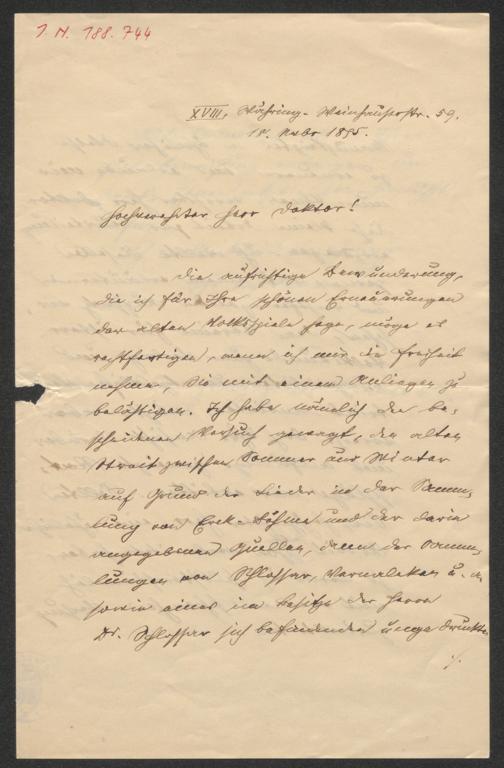 I. N. 188.744
XVIII, Währing - Weinhauserstr. 59.
18. Novbr 1895.
Hochverehrter Herr Doktor!
Die aufrichtige Bewunderung,
die ich für Ihre schönen Erneuerungen
der alten Volksspiele hege, möge es
rechtfertigen, wenn ich mir die Freiheit
nehme, Sie mit einem Anliegen zu
belästigen. Ich habe nämlich den be-
scheidenen Versuch gewagt, den alten
Streit zwischen Sommer und Winter
auf Grund der Lieder in der Samm-
lung von Erk-Böhme und der darin
angegebenen Quellen, dann der Samm-
lungen von Schlossar, Vernaleken u. a.
sowie eines im Besitze des Herrn
Dr. Schlossar sich befindenden ungedruckten
./.